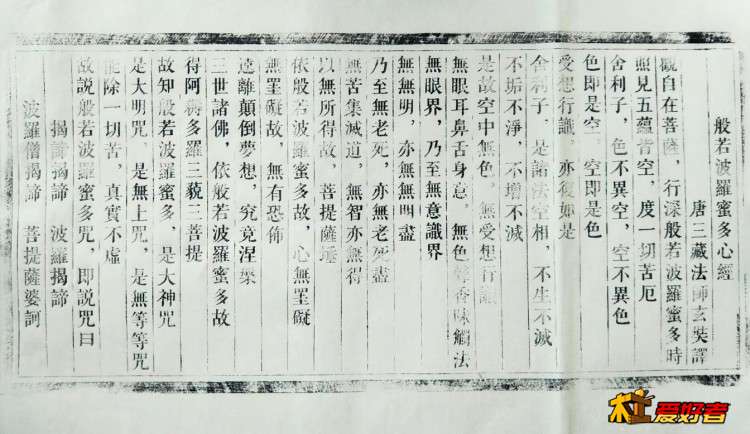 般若波羅蜜多心經
唐三藏法師玄奘譯
觀自在菩薩，行深般若波羅蜜多時
照見五蘊皆空，度一切苦厄
舍利子，色不異空，空不異色
色即是空，空即是色
受想行識，亦復如是
舍利子，是諸法空相，不生不滅
不垢不淨，不增不減
是故空中無色，無受想行識
無眼耳鼻舌身意，無色聲香味觸法
無眼界，乃至無意識界
無無明，亦無無明盡
乃至無老死，亦無老死盡
無苦集滅道，無智亦無得
以無所得故，菩提薩埵
依般若波羅蜜多故，心無罣礙
無罣礙故，無有恐怖
遠離顛倒夢想，究竟涅槃
三世諸佛，依般若波羅蜜多故
得阿耨多羅三藐三菩提
故知般若波羅蜜多，是大神咒
是大明咒，是無上咒，是無等等咒
能除一切苦，真實不虛
故説般若波羅蜜多咒，即説咒曰
揭諦揭諦　波羅揭諦
波羅僧揭諦　菩提薩婆訶
爱好者